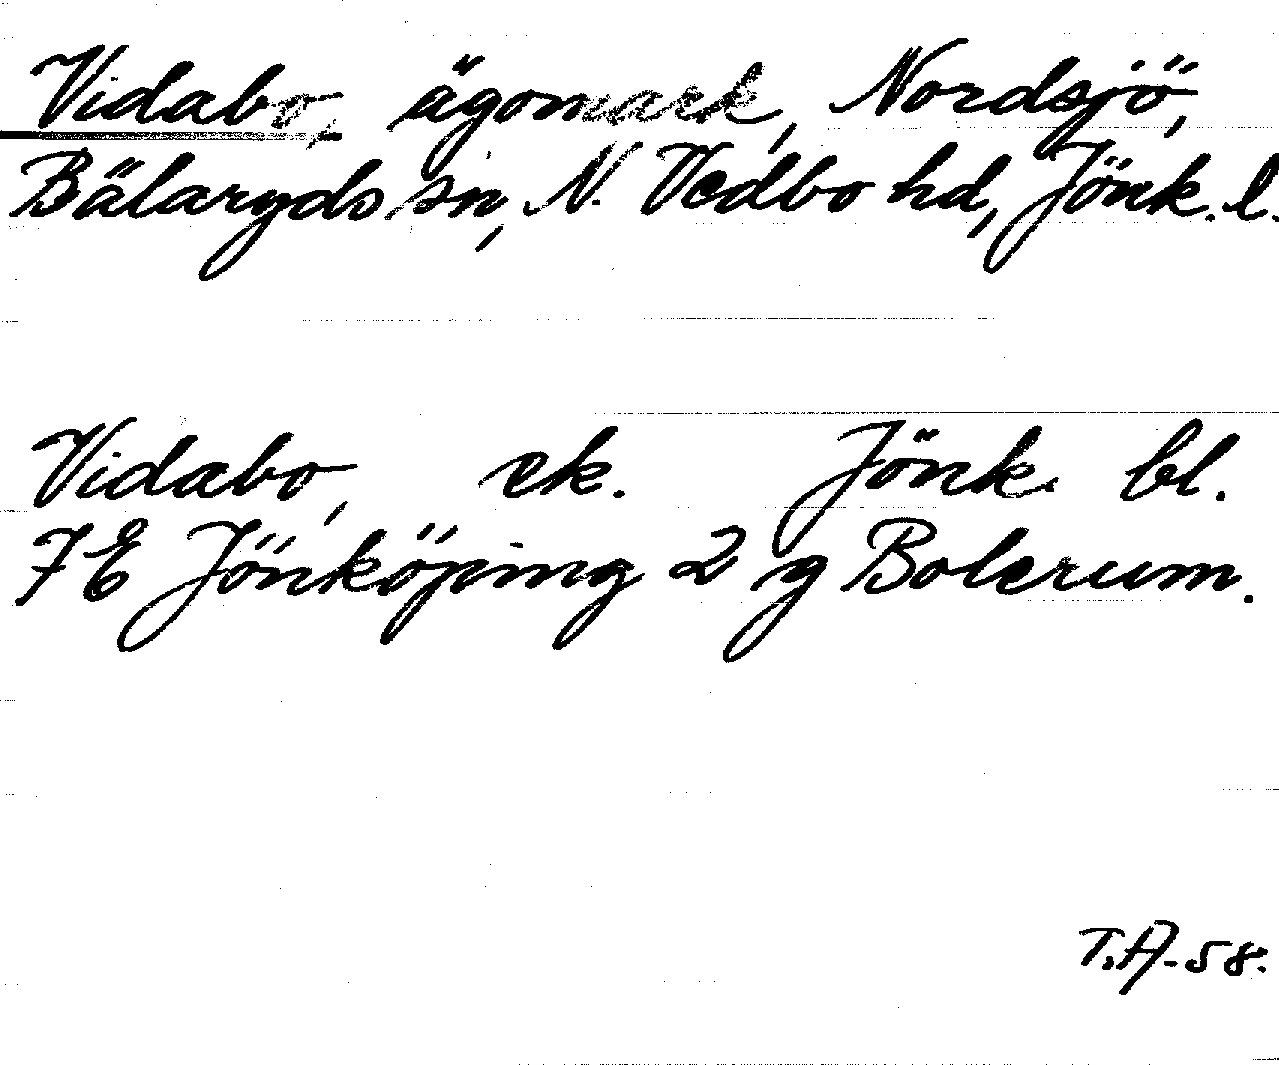 Vidabo, ägomark, Nordsjö,
Bälaryds sn, N. Vedbo hd, Jönk. l.
Vidabo, ek. Jönk. bl.
7E Jönköping 2 g Bolerum.
T.A-58.